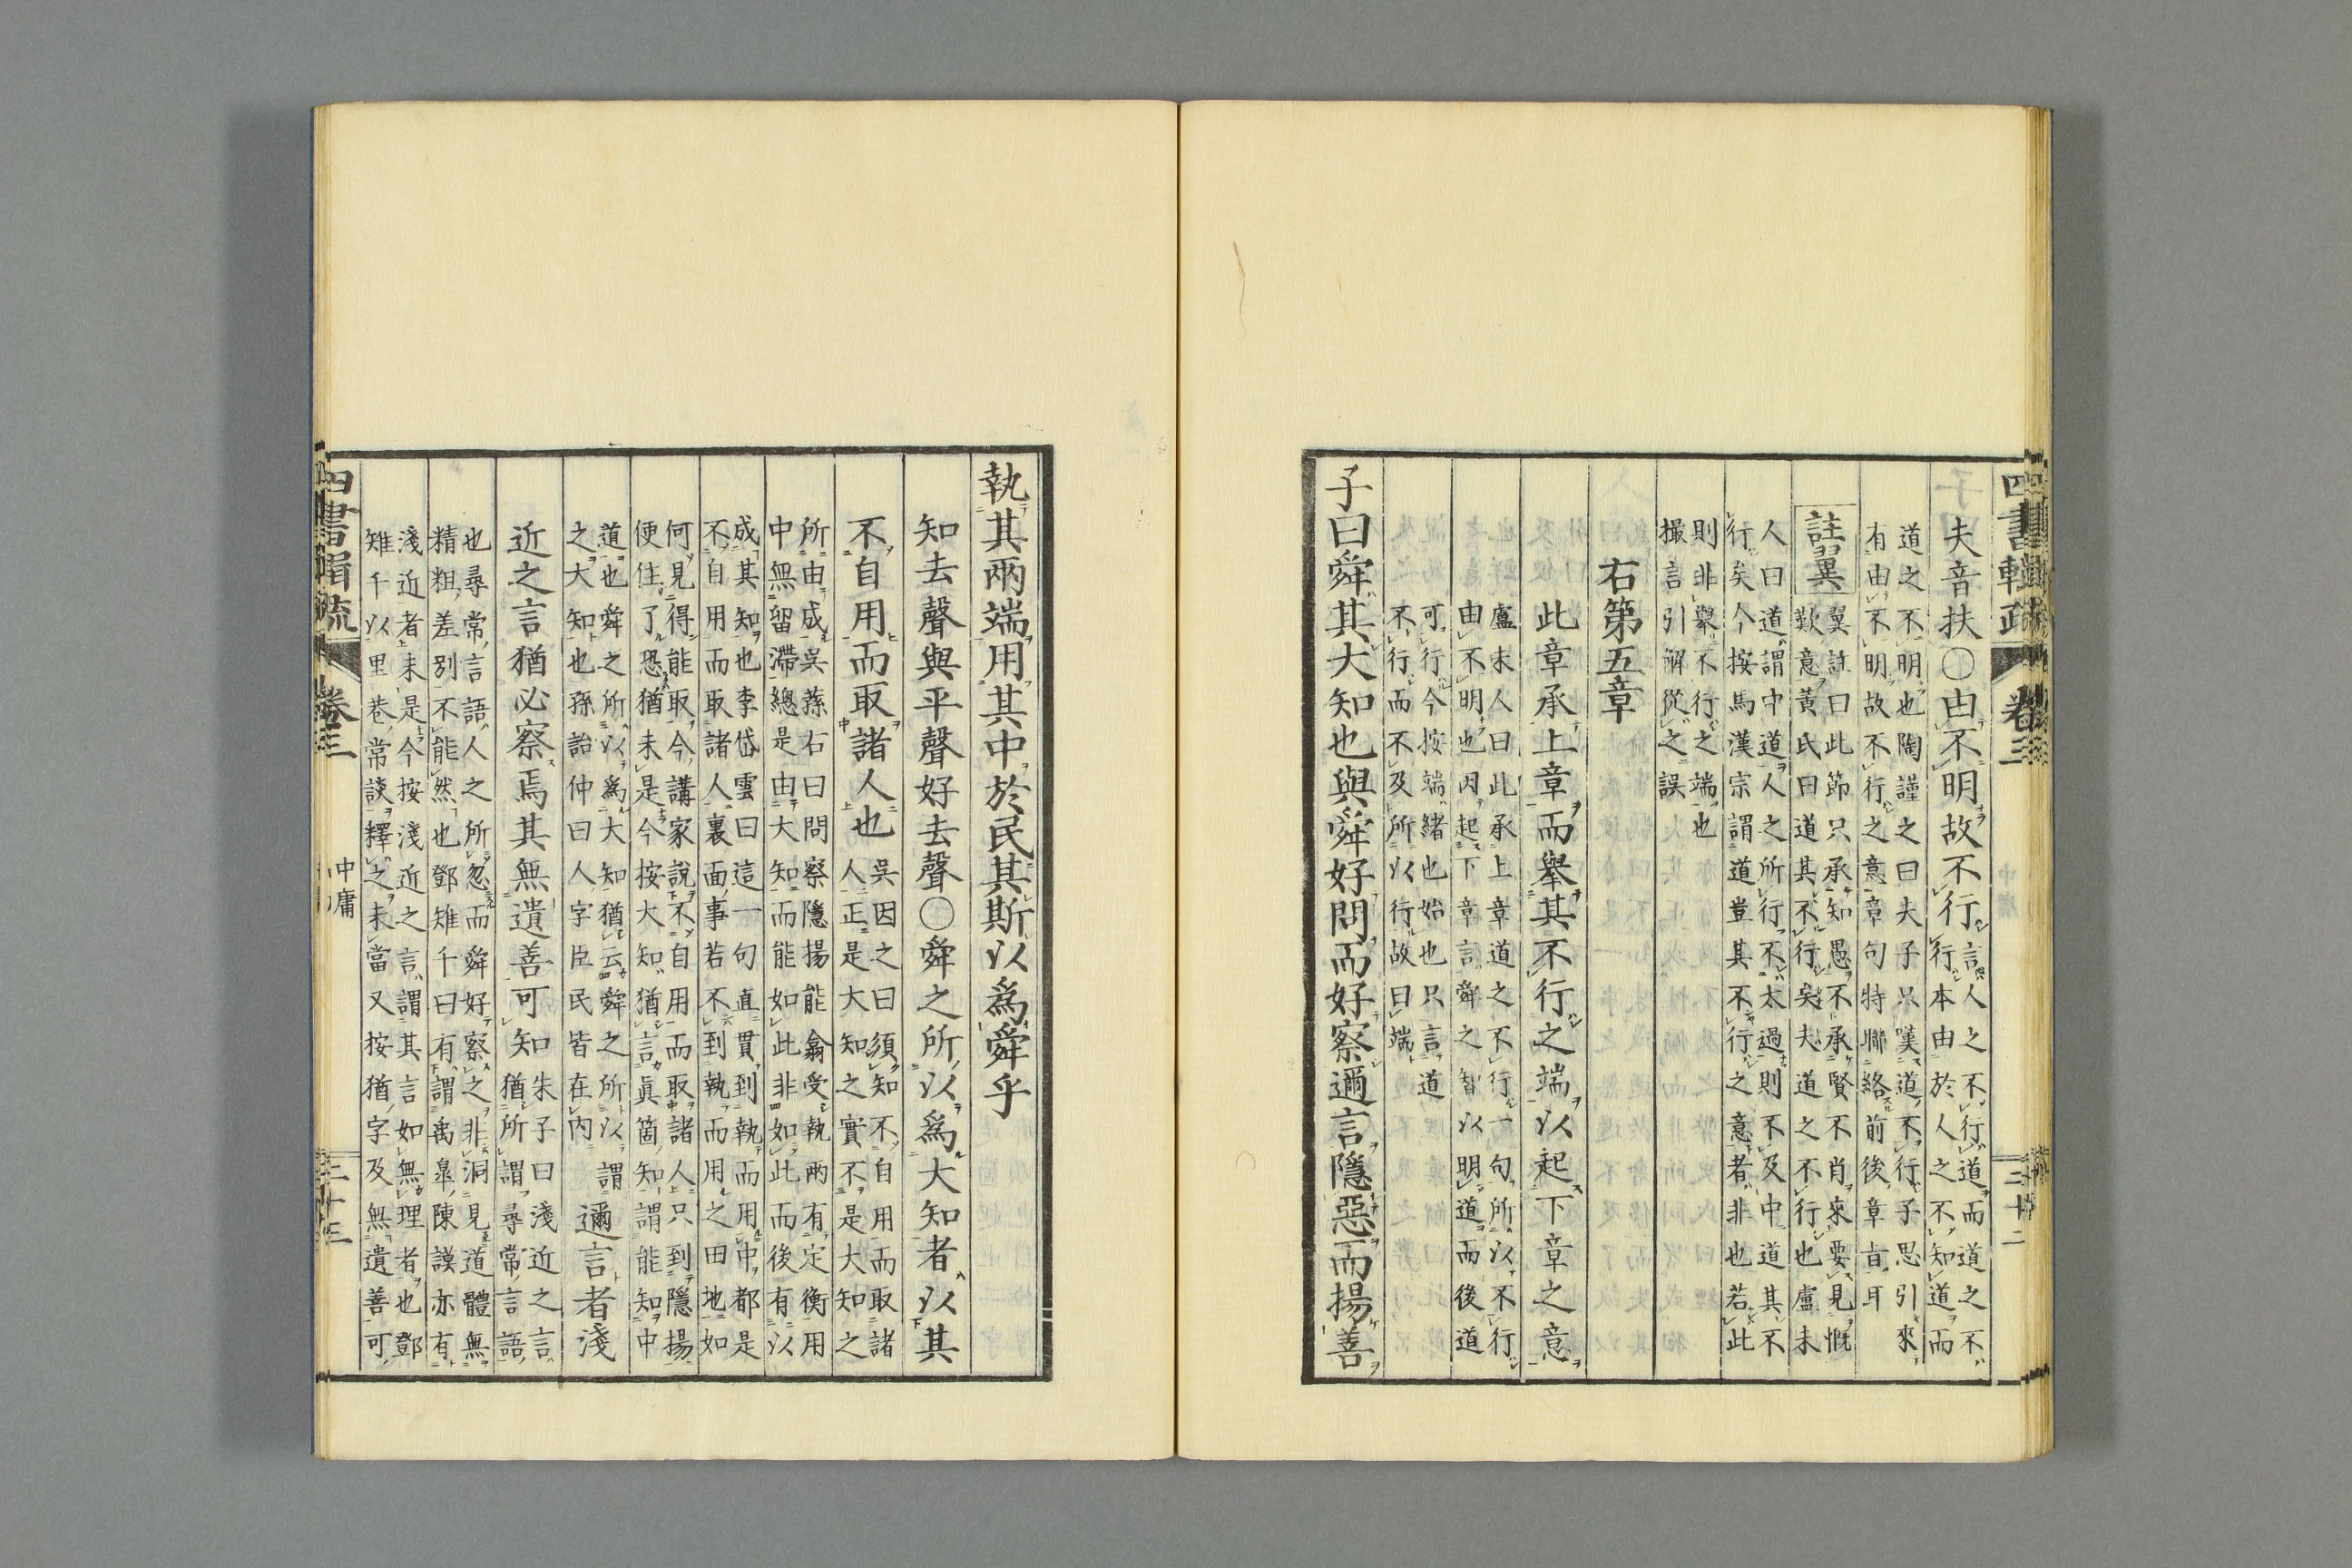 四書輯疏 卷三 三十二
夫音扶〇由不明故不行言人之不行道而道之不
行本由於人之不知道而
道之不明也陶謹之曰夫子只嘆道不行子思引來
有由不明故不行之意章句特聯絡前後章旨耳
註翼 翼註曰此節只承知愚不承賢不肖來要見慨
歎意黃氏曰道其不行矣夫道之不行也盧未
人曰道謂中道人之所行不太過則不及中道其不
行矣今按馬漢宗謂道豈其不行之意者非也若此
則非舉不行之端也
撮言引解從之誤
右第五章
此章承上章而舉其不行之端以起下章之意
盧未人曰此承上章道之不行一句所以不行
由不明也因起下章言舜之智以明道而後道
可行今按端緒也始也只言道
不行而不及所以行故曰端
子曰舜其大知也與舜好問而好察邇言隱惡而揚善
執其兩端用其中於民其斯以爲舜乎
知去聲與平聲好去聲〇舜之所以爲大知者以其
不自用而取諸人也吳因之曰須知不自用而取諸
人正是大知之實不是大知之
所由成吳蓀右曰問察隱揚能翕受執兩有定衡用
中無留滯總是由大知而能如此非如此而後有以
成其知也李岱雲曰這一句直貫到執而用中都是
不自用而取諸人裏面事若不到執而用之田地如
何見得能取今講家說不自用而取諸人只到隱揚
便住了恐猶未是今按大知猶言眞箇知謂能知中
道也舜之所以爲大知猶云舜之所以謂
之大知也孫詒仲曰人字臣民皆在內
邇言者淺
近之言猶必察焉其無遺善可知朱子曰淺近之言
猶所謂尋常言語
也尋常言語人之所忽而舜好察之非洞見道體無
精粗差別不能然也鄧雉千曰有謂禹皋陳謨亦有
淺近者未是今按淺近之言謂其言如無理者也鄧
雉千以里巷常談釋之未當又按猶字及無遺善可
四書輯疏 卷三 中庸 三十三